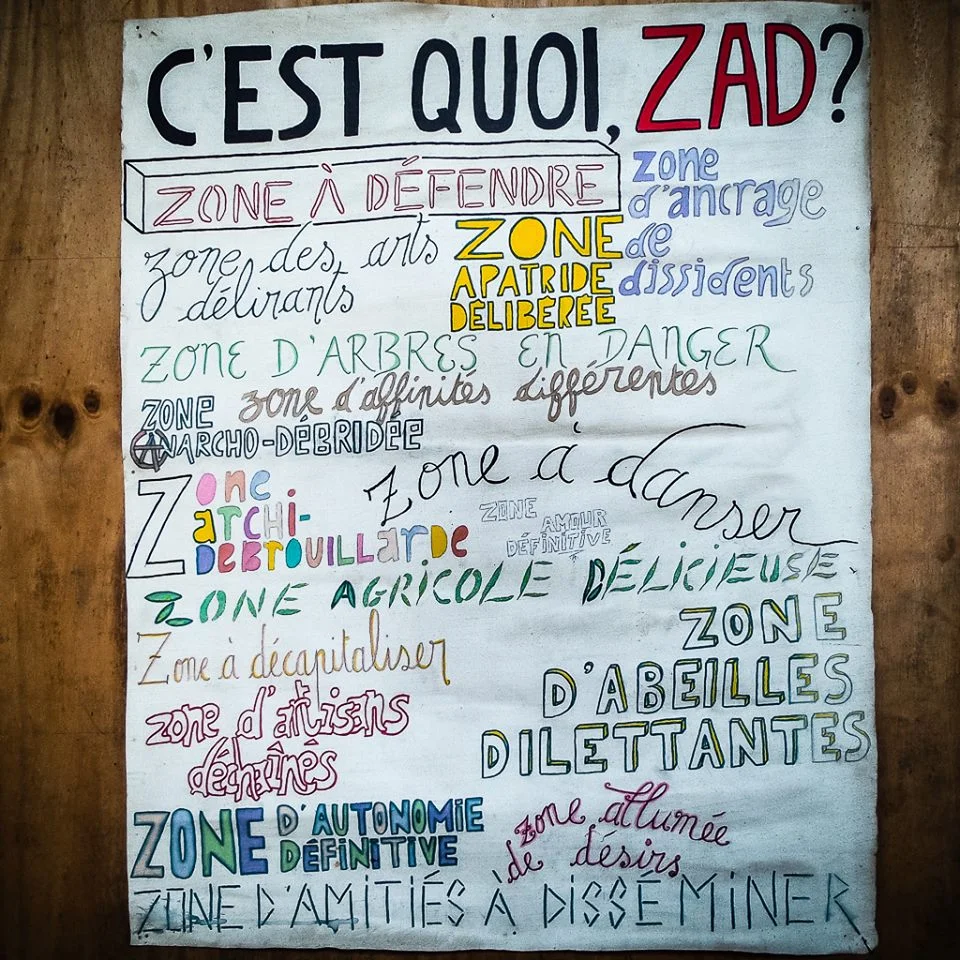 C'EST QUOI, ZAD?
ZONE À DÉFENDRE
zone
d'ancrage
de
dissidents
zone des arts
délirants
ZONE
APATRIDE
DÉLIBÉRÉE
ZONE D'ARBRES EN DANGER
zone d'affinités différentes
ZONE
ANARCHO-DÉBRIDÉE
zone à danser
Zone
archi-
DEBROUILLARDE
ZONE
AMOUR
DÉFINITIVE
ZONE AGRICOLE DÉLICIEUSE
Zone à décapitaliser
ZONE
D'ABEILLES
DILETTANTES
zone d'artisans
déchaînés
ZONE D'AUTONOMIE
DÉFINITIVE
zone allumée
de désirs
ZONE D'AMITIÉS À DISSÉMINER